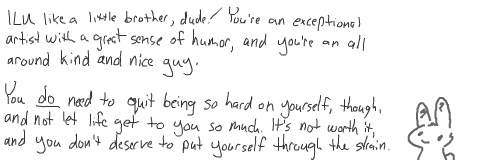 ILU like a little brother, dude! You're an exceptional
artist with a great sense of humor, and you're an all
around kind and nice guy.
You do need to quit being so hard on yourself, though,
and not let life get to you so much. It's not worth it,
and you don't deserve to put yourself through the strain.